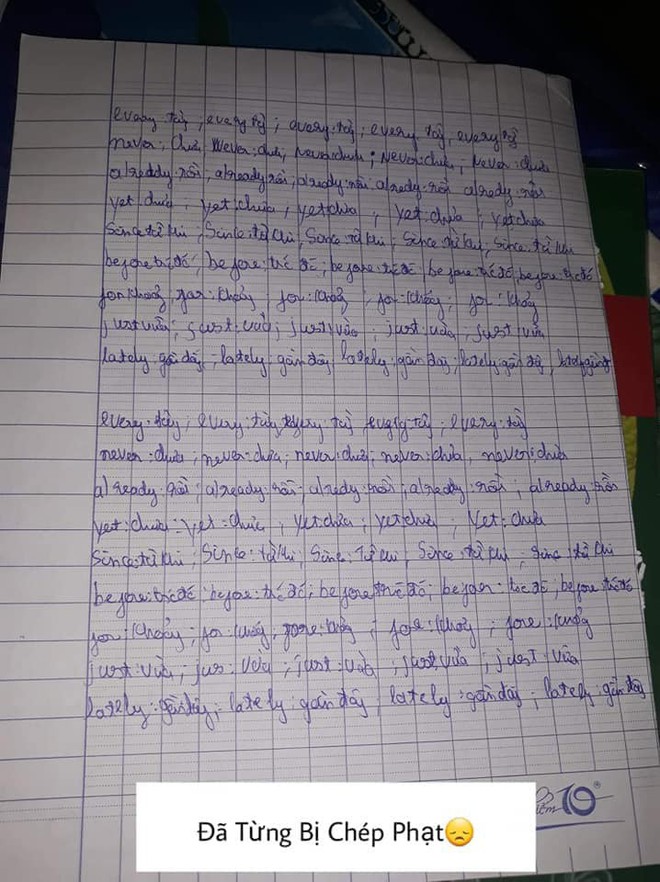 every từng; every từng; every: từng; every từng, every từng
never: chưa, Never: chưa, Never: chưa; Never: chưa, Never: chưa
alreddy rồi, already rồi, already: rồi already: rồi already rồi
yet chưa; yet: chưa, yet chưa, yet: chưa, yet chưa
Since từ khi, Since từ khi, Since từ khi, Since từ khi, Since: từ khi
before trước đó, before: trước đó; before: trước đó before trước đó, before trước đó
for: khoảng; for: khoảng; for: khoảng
just vừa; just: vừa; just vừa; just: vừa; just vừa
lately: gần đây, lately: gần đây lately: gần đây, lately gần đây,
every: từng; every từng, every từng, every: từng
never: chưa; never: chưa; never: chưa; never: chưa, never: chưa
already rồi; already: rồi; already rồi; already: rồi; already: rồi
yet: chưa: yet: chưa, yet chưa; yet chưa; Yet: chưa
Since từ khi; Since: từ khi; Since: từ khi, Since từ khi, từ khi
before: trước đó before: trước đó; before trước đó; trước đó; before trước đó
for: khoảng; for: khoảng, fore: khoảng; fore: khoảng
just: vừa; jus: vừa; just: vừa; just vừa; just: vừa
lately: gần đây; lately: gần đây, lately: gần đây; lately: gần đây
điểm 10
Đã Từng Bị Chép Phạt😞